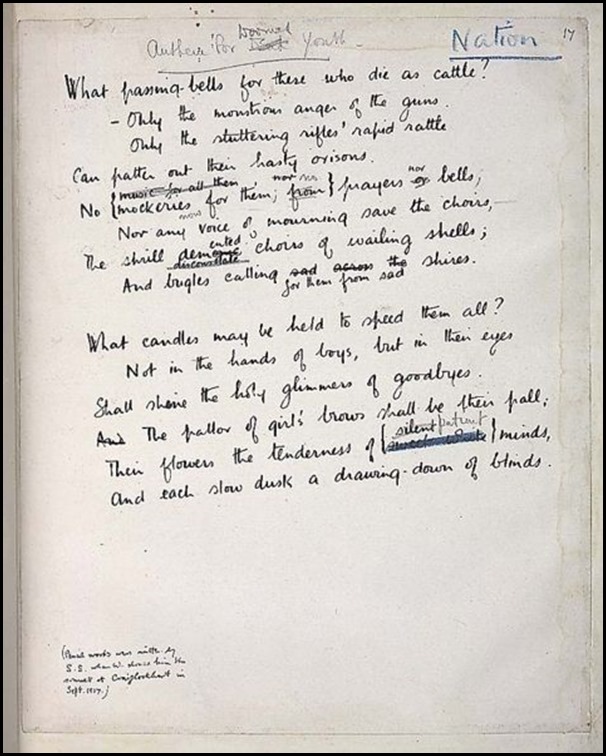 Doomed
Anthem for Dead Youth
Nation
17
What passing-bells for these who die as cattle?
– Only the monstrous anger of the guns.
Only the stuttering rifles' rapid rattle
Can patter out their hasty orisons.
music for all them nor no nor
No { mockeries for them; from } prayers or bells,
now
Nor any voice of mourning save the choirs,–
ented
The shrill demonic choirs of wailing shells;
disconsolate
And bugles calling sad across the shires.
for them from sad
What candles may be held to speed them all?
Not in the hands of boys, but in their eyes
Shall shine the holy glimmers of goodbyes.
And The pallor of girls' brows shall be their pall;
silent patient
Their flowers the tenderness of { sweet white } minds,
And each slow dusk a drawing-down of blinds.
(Pencil words were written by
S.S. when W. showed him the
sonnet at Craiglockhart in
Sept. 1917.)